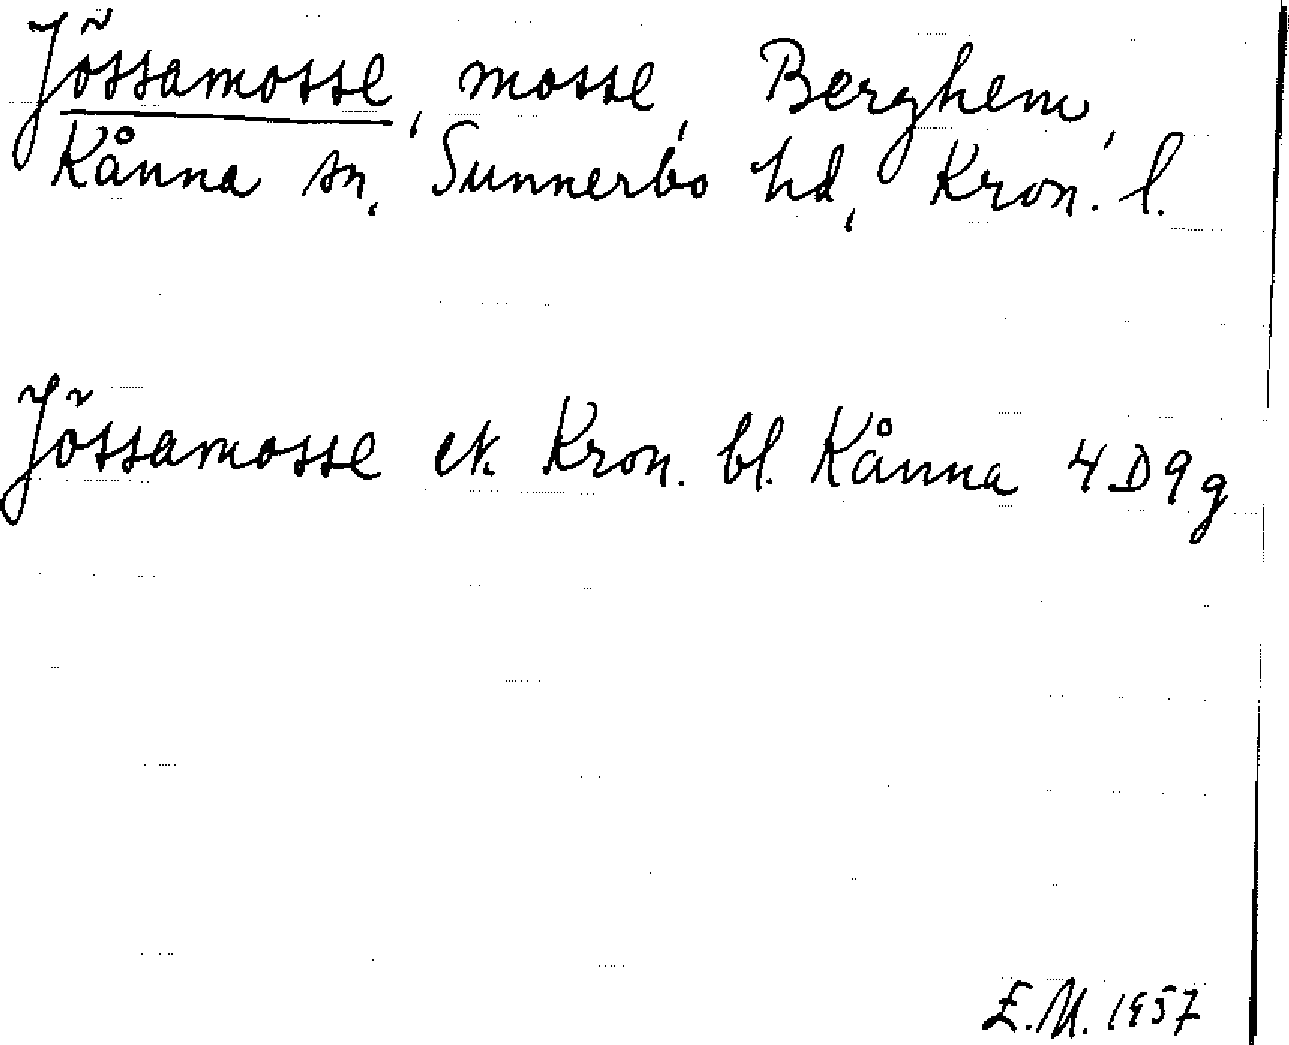 Jössamosse, mosse, Berghem,
Kånna sn, Sunnerbo hd, Kron. l.
Jössamosse ek. Kron. bl. Kånna 4D9g
E.M. 1957